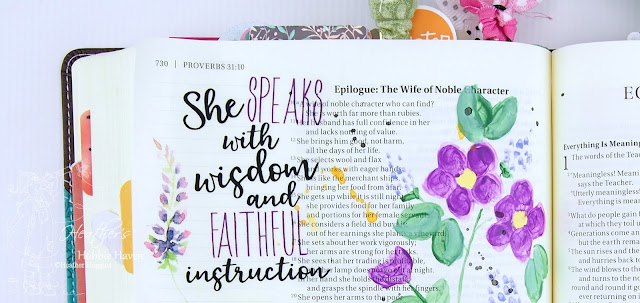 730 | PROVERBS 31:10
She SPEAKS
with
wisdom
and
FAITHFUL
instruction
Epilogue: The Wife of Noble Character
wife of noble character who can find?
is worth far more than rubies.
husband has full confidence in her
and lacks nothing of value.
She brings him good, not harm,
all the days of her life.
She selects wool and flax
with eager hands.
like the merchant ships,
bringing her food from afar.
gets up while it is still night;
she provides food for her family
and portions for her female servants.
She considers a field and buys it;
out of her earnings she plants a vineyard.
She sets about her work vigorously;
her arms are strong for her tasks.
She sees that her trading is profitable,
her lamp does not go out at night.
In her hand she holds the distaff
and grasps the spindle with her fingers.
She opens her arms to the poor
Everything Is Meaningl
1 The words of the Teache
"Meaningless! Meaningl
says the Teacher.
"Utterly meaningless!
Everything is mean
What do people gain
at which they toil u
Generations come an
but the earth remai
The sun rises and the
and hurries back t
The wind blows to th
and turns to the n
round and round it g